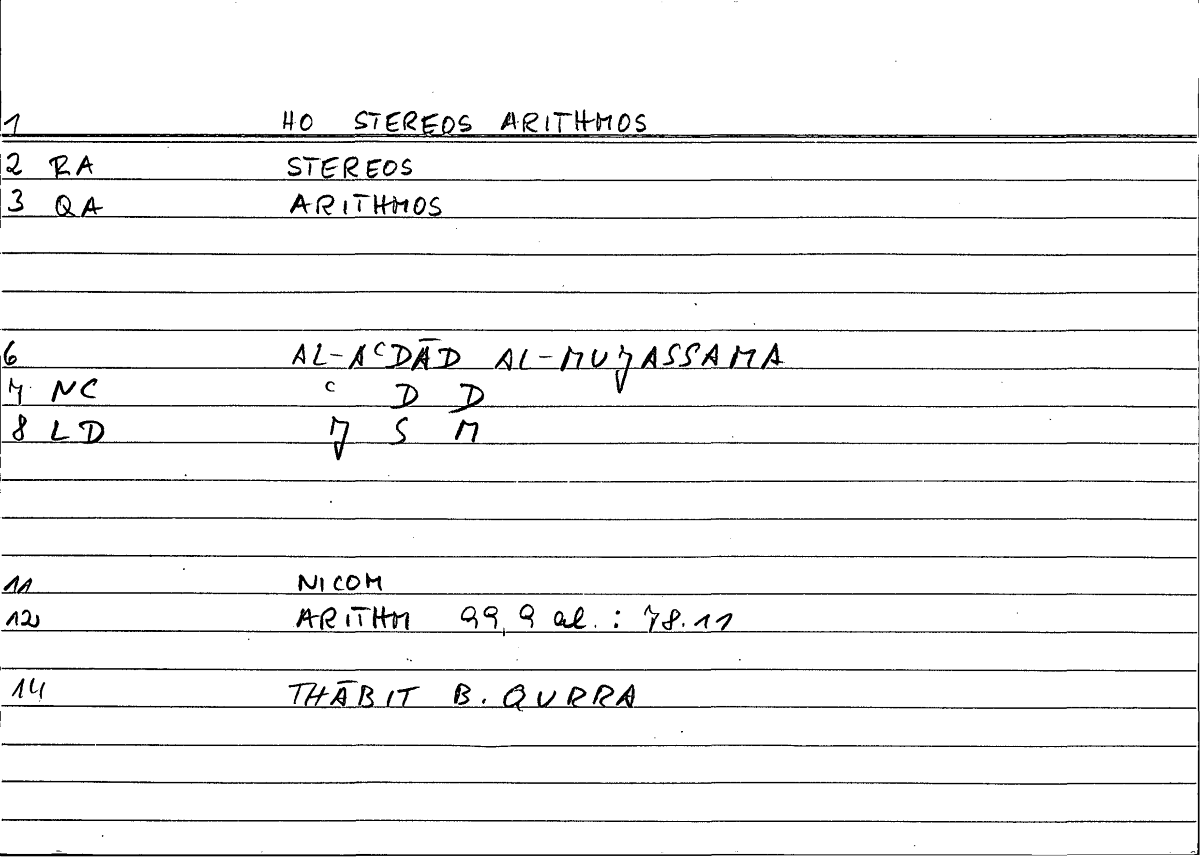 1 HO STEREOS ARITHMOS
2 RA STEREOS
3 QA ARITHMOS
6 AL-AᶜDĀD AL-MUJASSAMA
7 NC ᶜ D D
8 LD J S M
11 NICOM
12 ARITHM 99,9 al. : 78.11
14 THĀBIT B. QURRA